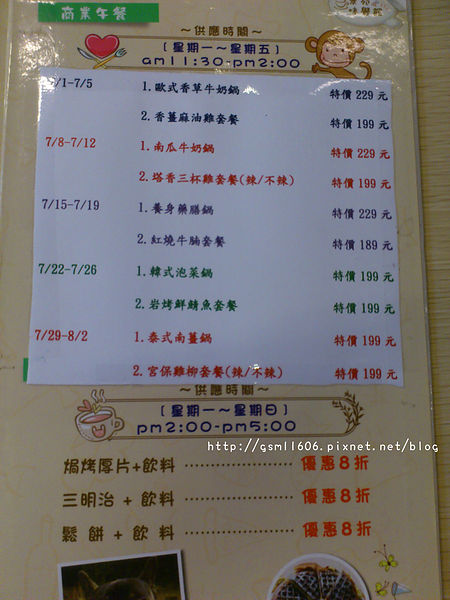 商業午餐
～供應時間～
〔星期一～星期五〕
am11:30-pm2:00
/1-7/5 1.歐式香草牛奶鍋 特價 229 元
2.香薑麻油雞套餐 特價 199 元
7/8-7/12 1.南瓜牛奶鍋 特價 229 元
2.塔香三杯雞套餐(辣/不辣) 特價 199 元
7/15-7/19 1.養身藥膳鍋 特價 229 元
2.紅燒牛腩套餐 特價 189 元
7/22-7/26 1.韓式泡菜鍋 特價 199 元
2.岩烤鮮鯖魚套餐 特價 199 元
7/29-8/2 1.泰式南薑鍋 特價 199 元
2.宮保雞柳套餐(辣/不辣) 特價 199 元
～供應時間～
〔星期一～星期日〕
pm2:00-pm5:00
http://gsm11606.pixnet.net/blog
焗烤厚片+飲料 ················ 優惠8折
三明治 + 飲料 ················ 優惠8折
鬆 餅 + 飲 料 ················ 優惠8折